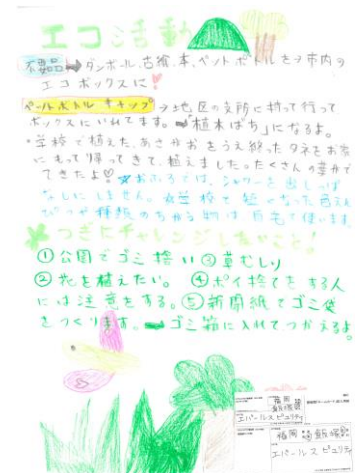 エコ活動
不要品→ダンボール、古紙、本、ペットボトルを→市内の
エコボックスに
ペットボトルキャップ→地区の支所に持って行って
ボックスにいれてます。→「植木ばち」になるよ。
・学校で植えた、あさがおをうえ終ったタネをお家
にもって帰ってきて、植えました。たくさんの芽がで
できたよ♡☆おふろでは、シャワーを出しっぱ
なしにしません。☆学校で短くなったえん
ぴつが種類のちがう物は自宅で使います
つぎにチャレンジしたいこと!
①公園でゴミ拾い③草むしり
②花を植えたい。④ポイ捨てをする人
には注意をする。⑤新聞紙でゴミ袋
をつくります。→ゴミ箱に入れてつかえるよ。
福岡
エバールスピュリティ
福岡
エバールスピュリティ